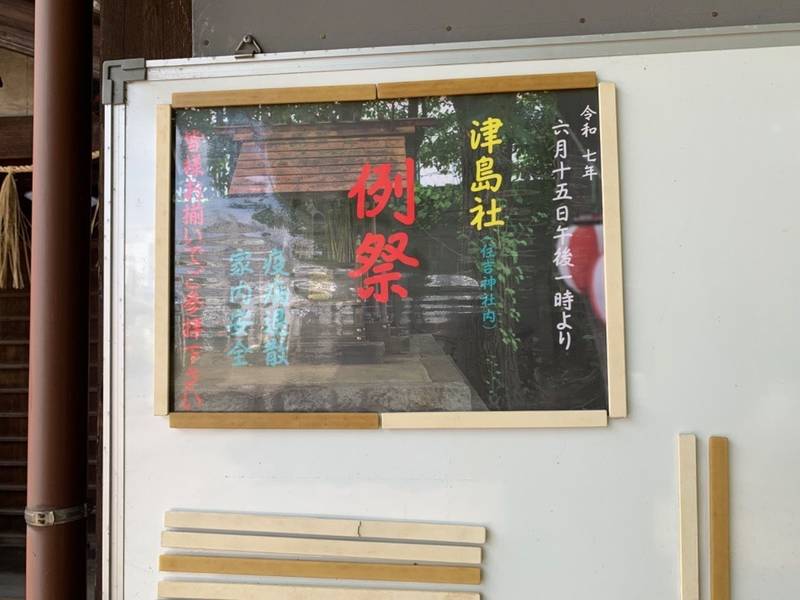 令和 七年
六月十五日午後一時より
津島社
(住吉神社内)
例祭
疫病退散
家内安全
皆様お揃いでご参拝下さい